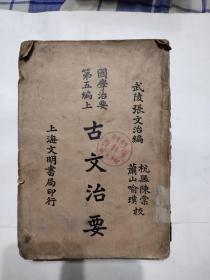 武陵張文治編
杭縣陳棠校
蕭山喻璞
國學治要
第五編上
古文治要
上海文明書局印行